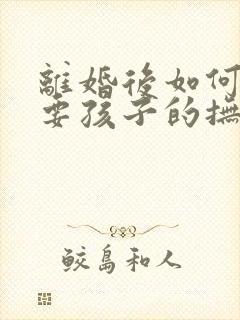 離婚後如何
要孩子的撫
鮫島和人